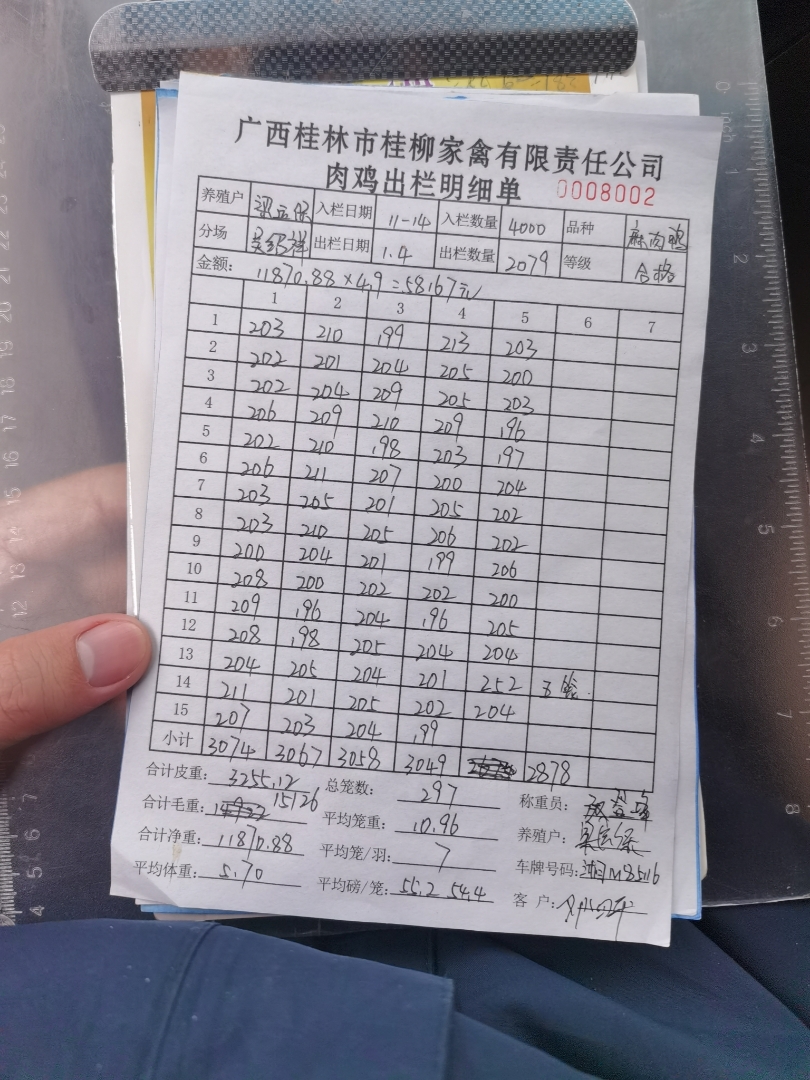 广西桂林市桂柳家禽有限责任公司
肉鸡出栏明细单 0008002
养殖户 入栏日期 11-14 入栏数量 4000 品种 麻肉鸡
分场 出栏日期 1.4 出栏数量 2079 等级 合格
金额: 11870.88×4.9=58167元
1 2 3 4 5 6 7
1 203 210 199 213 203
2 202 201 204 205 200
3 202 204 209 205 203
4 206 209 210 209 196
5 202 210 198 203 197
6 206 211 207 200 204
7 203 205 201 205 202
8 203 210 205 206 202
9 200 204 201 199 206
10 208 200 202 202 200
11 209 196 204 196 205
12 208 198 205 204 204
13 204 205 204 201 252
14 211 201 205 202 204
15 207 203 204 199
小计 3074 3067 3058 3049 2878
合计皮重: 3255.12 总笼数: 297 称重员:
合计毛重: 15126 平均笼重: 10.96 养殖户:
合计净重: 11870.88 平均笼/羽: 7 车牌号码: 湘M85116
平均体重: 5.70 平均磅/笼: 55.2 54.4 客 户: